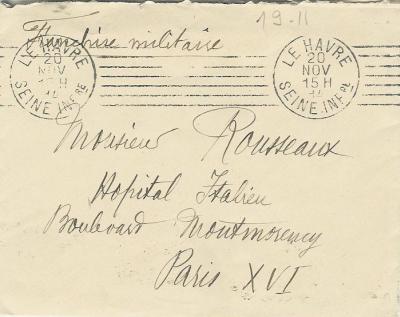 19-11
Franchise militaire
LE HAVRE
20
NOV
15H
SEINE INFRE
LE HAVRE
20
NOV
15H
SEINE INFRE
Monsieur Rousseaux
Hopital Italien
Boulevard Montmorency
Paris XVI